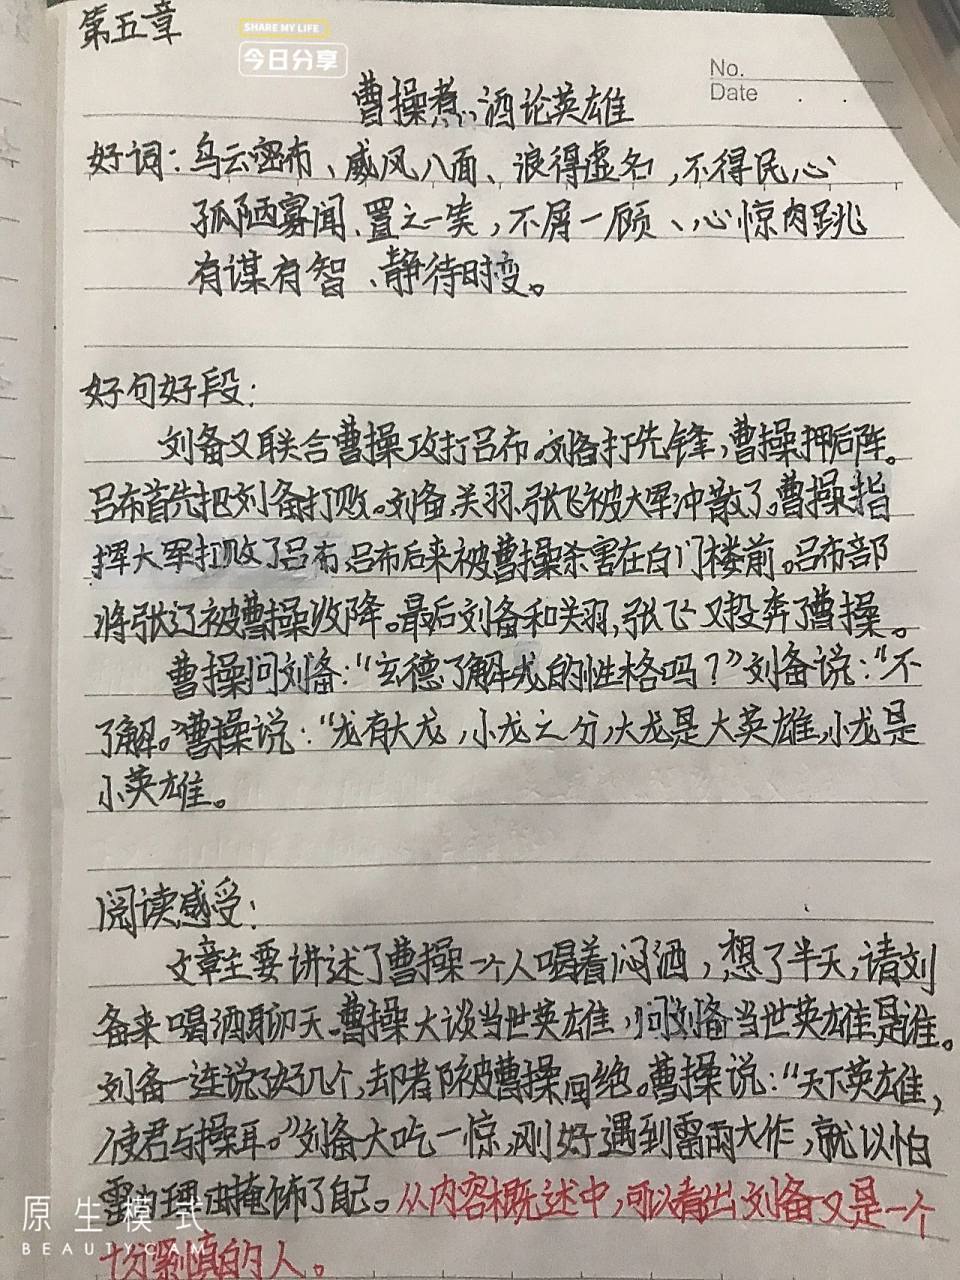 第五章
SHARE MY LIFE
今日分享
No.
Date
曹操煮酒论英雄
好词：乌云密布、威风八面、浪得虚名，不得民心
孤陋寡闻、置之一笑，不屑一顾、心惊肉跳
有谋有智、静待时变。
好句好段：
刘备又联合曹操攻打吕布。刘备打先锋，曹操押后阵。
吕布首先把刘备打败。刘备、关羽、张飞被大军冲散了。曹操指
挥大军打败了吕布、吕布后来被曹操杀害在白门楼前。吕布部
将张辽被曹操收降。最后刘备和关羽，张飞又投奔了曹操。
曹操问刘备："玄德了解龙的性格吗？"刘备说："不
了解。"曹操说："龙有大龙，小龙之分，大龙是大英雄，小龙是
小英雄。
阅读感受：
文章主要讲述了曹操一个人喝着闷酒，想了半天，请刘
备来喝酒聊天。曹操大谈当世英雄，问刘备当世英雄是谁。
刘备一连说了好几个，却都被曹操回绝。曹操说："天下英雄，
使君与操耳。"刘备大吃一惊，刚好遇到雷雨大作，就以怕
雷为理由掩饰了自己。从内容概述中，可以看出刘备又是一个
十分谨慎的人。
原生模式
BEAUTYCAM